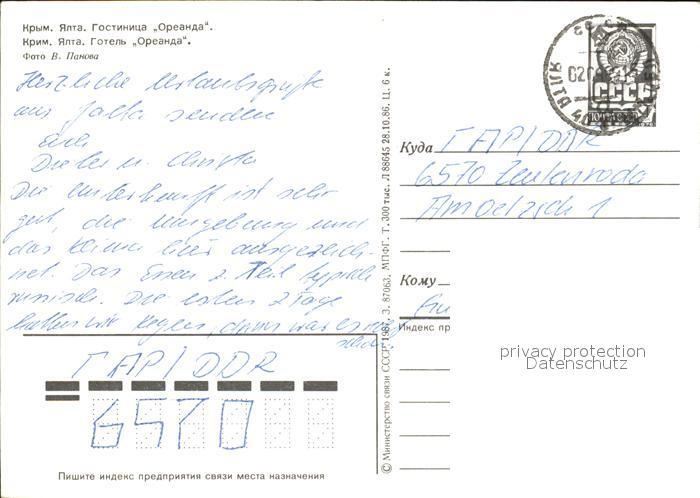 Крым. Ялта. Гостиница „Ореанда“.
Крим. Ялта. Готель „Ореанда“.
Фото В. Панова
Herzliche Urlaubsgrüße
aus Jalta senden
Eure
Dieter u. Christa
Die Unterkunft ist sehr
gut, die Umgebung und
das Klima hier ausgezeich-
net. Das Essen z. Teil typisch
russisch. Die ersten 2 Tage
hatten wir Regen, dann war es
ГАР/DDR
6570
Пишите индекс предприятия связи места назначения
© Министерство связи СССР 1987, З. 87063, МПФГ. Т. 300 тыс. Л 88645 28.10.86. Ц. 6 к.
ЯЛТА
СССР
Куда ГАР/DDR
6570 Zeulenroda
Am Oelzsch 1
Кому
Индекс пр
privacy protection
Datenschutz